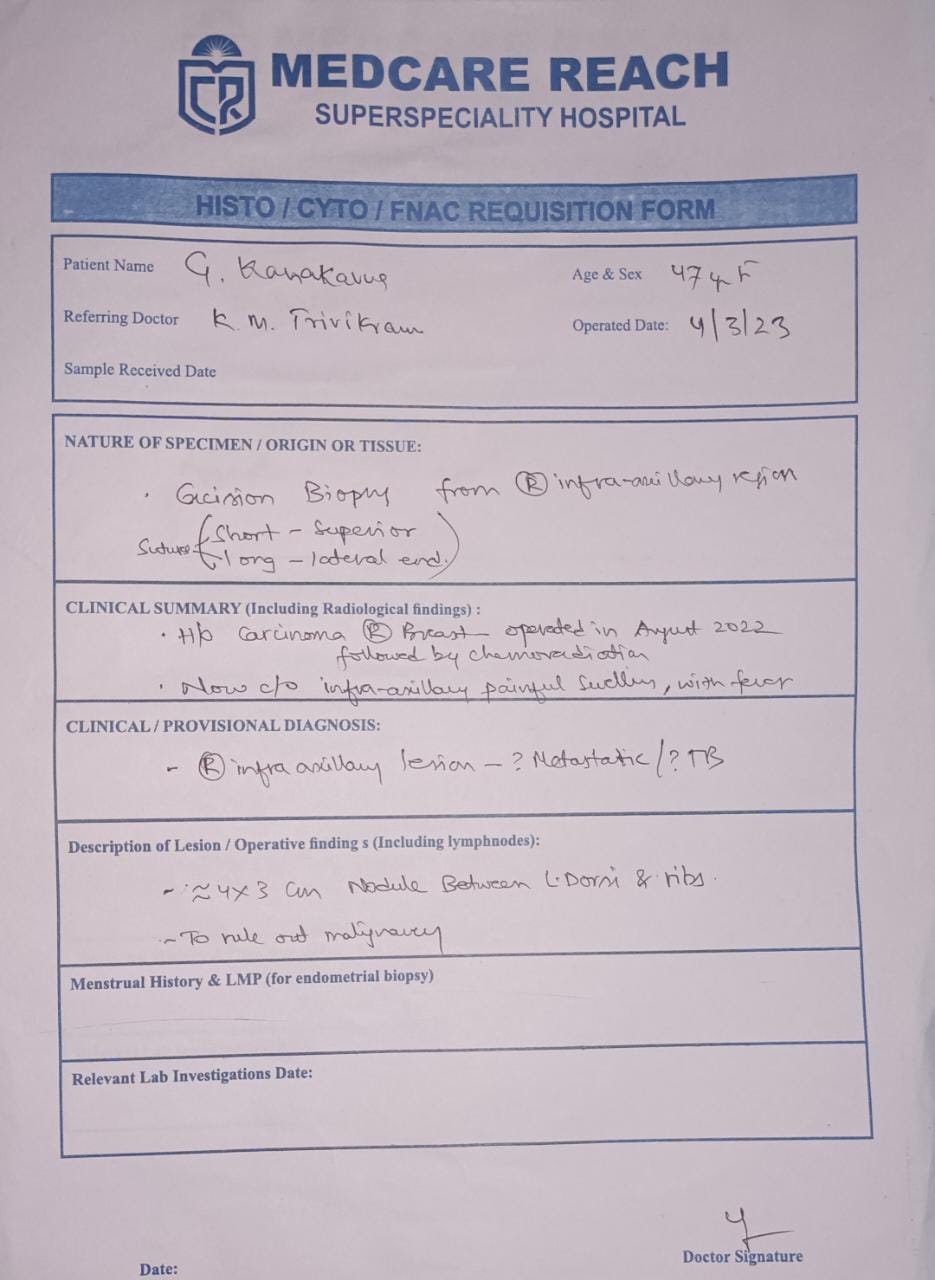 MEDCARE REACH
SUPERSPECIALITY HOSPITAL
HISTO / CYTO / FNAC REQUISITION FORM
Patient Name G. Kanakavva
Age & Sex 47 y F
Referring Doctor K. M. Trivikram
Operated Date: 4/3/23
Sample Received Date
NATURE OF SPECIMEN / ORIGIN OR TISSUE:
· Excision Biopsy from Ⓡ infra-axillary region
Suture (Short - Superior
long - lateral end.)
CLINICAL SUMMARY (Including Radiological findings) :
· H/o Carcinoma Ⓡ Breast operated in August 2022
followed by chemoradiation
· Now c/o infra-axillary painful swelling, with fever
CLINICAL / PROVISIONAL DIAGNOSIS:
- Ⓡ infra axillary lesion - ? Metastatic / ? TB
Description of Lesion / Operative finding s (Including lymphnodes):
- ≈ 4x3 cm Nodule Between L.Dorsi & ribs.
- To rule out malignancy
Menstrual History & LMP (for endometrial biopsy)
Relevant Lab Investigations Date:
Doctor Signature
Date: